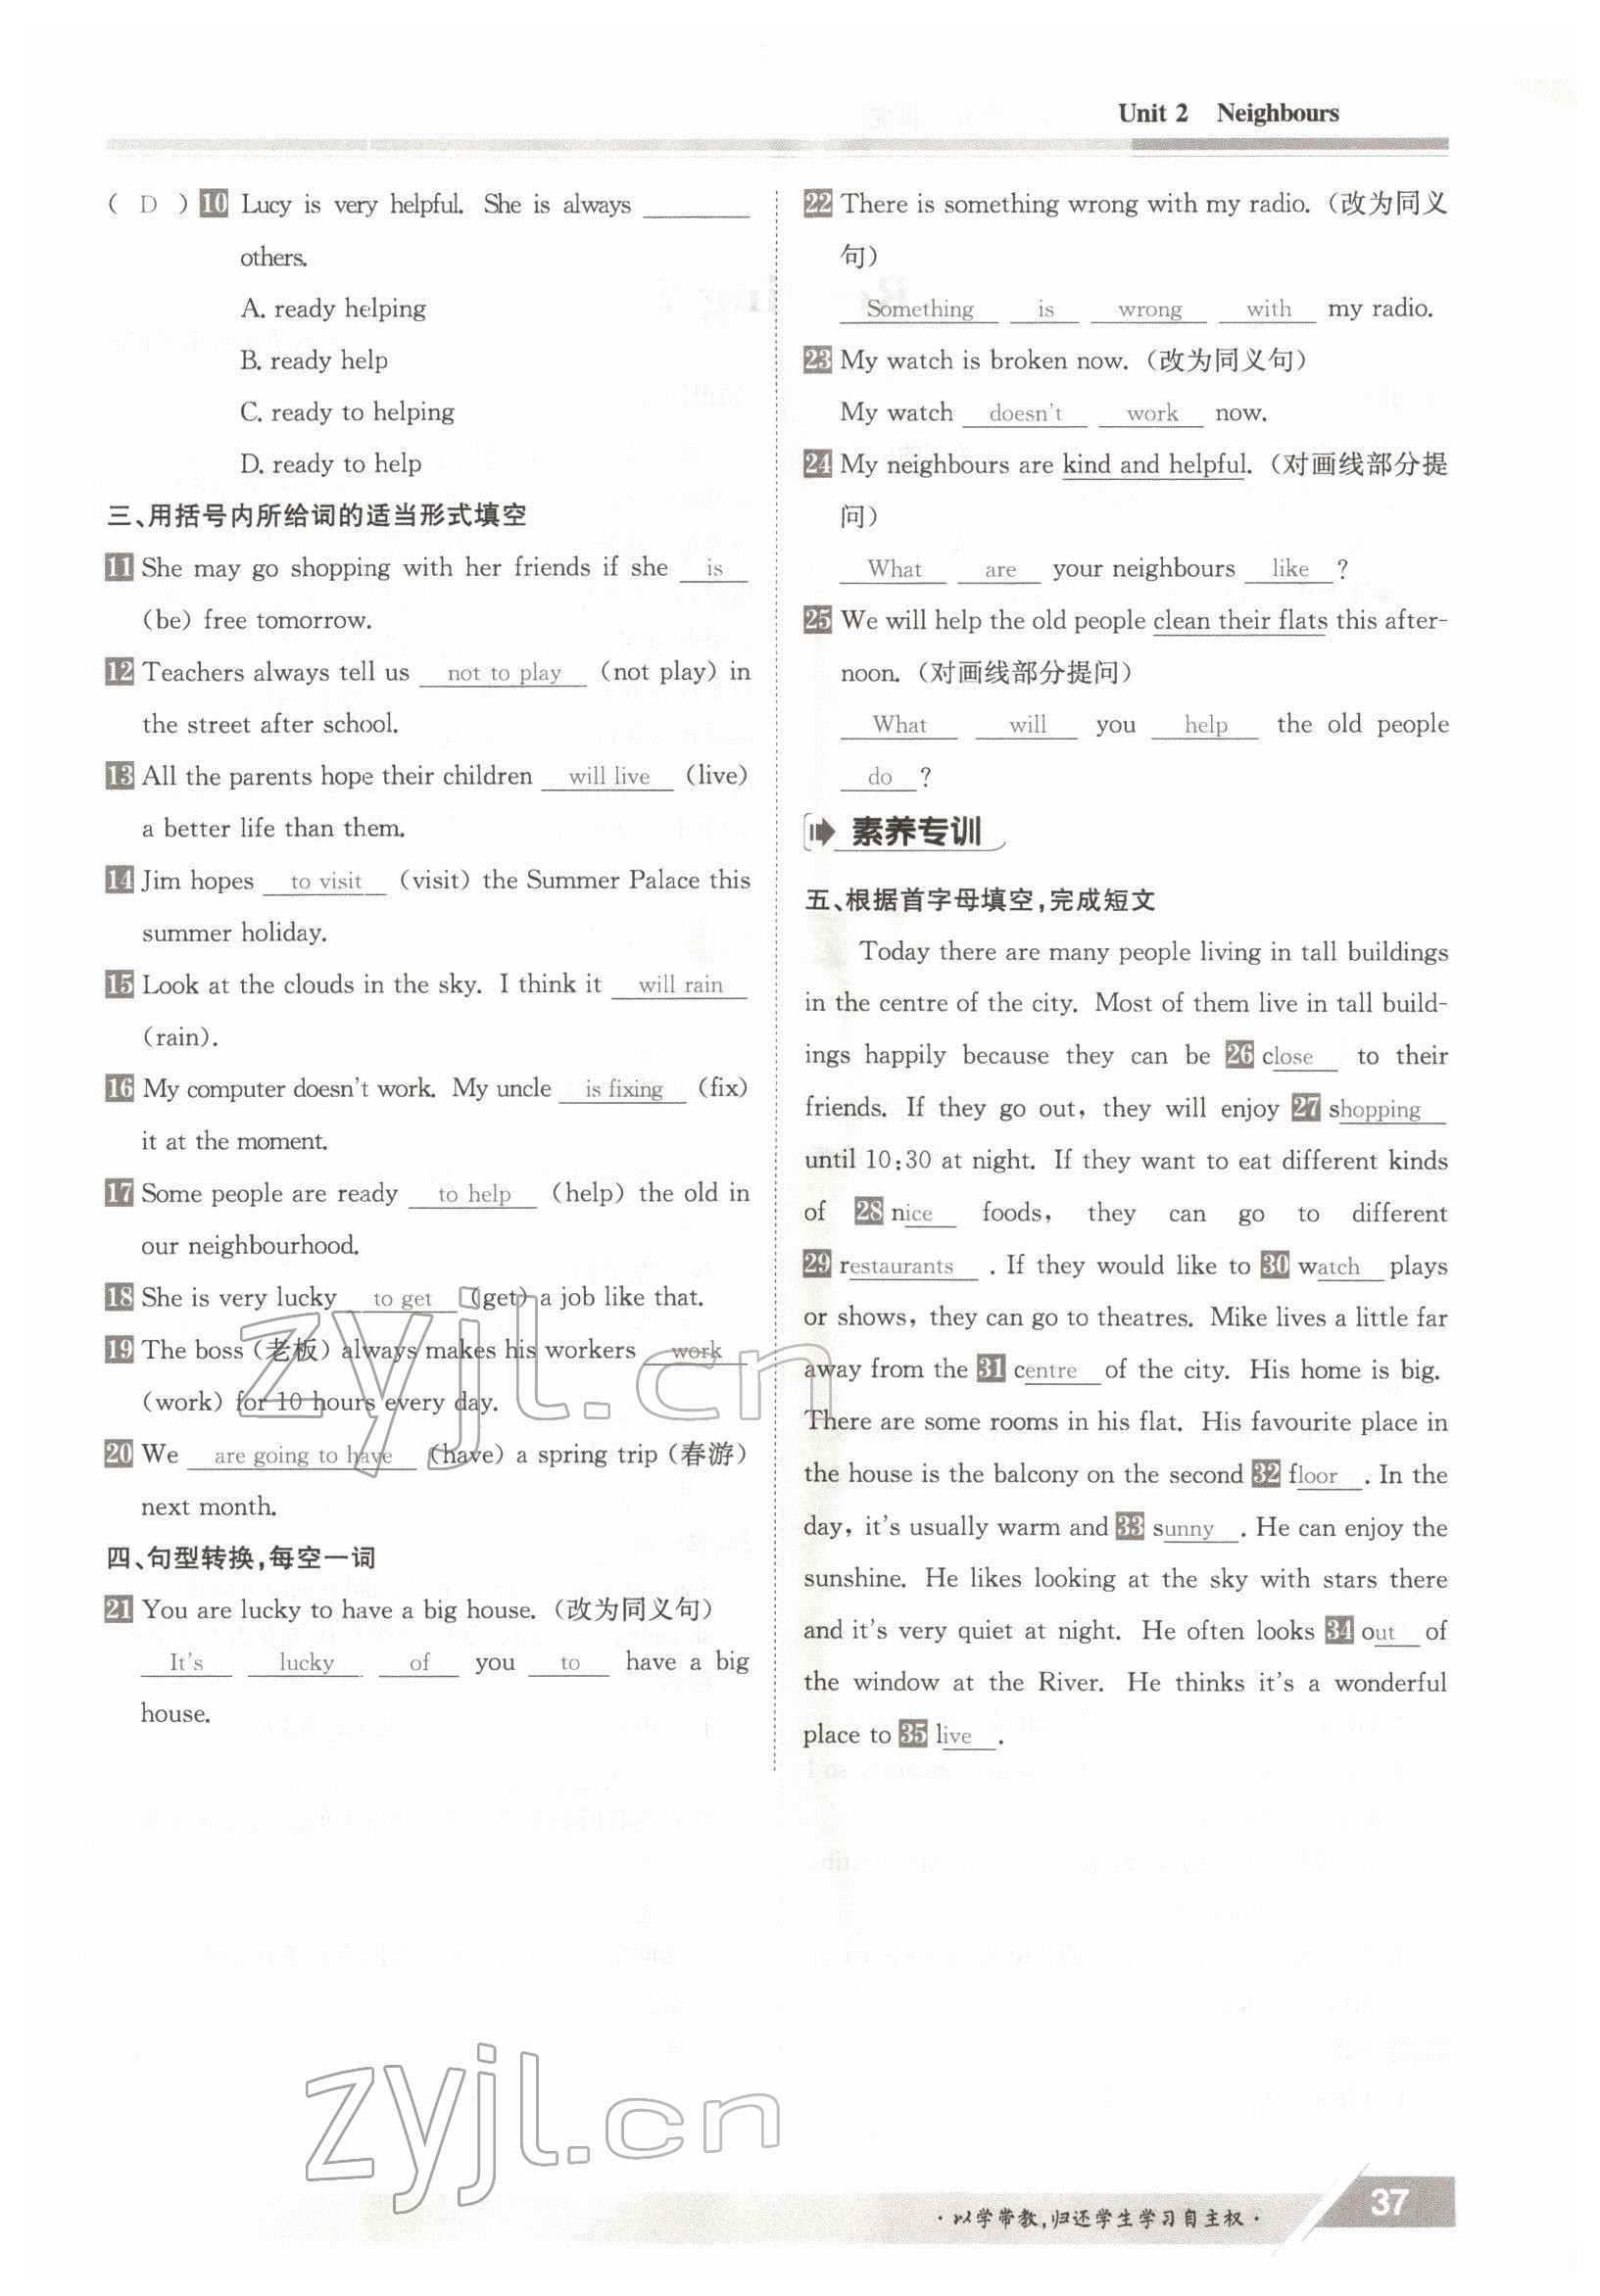 Unit 2 Neighbours
( D ) 10 Lucy is very helpful. She is always ________
others.
A. ready helping
B. ready help
C. ready to helping
D. ready to help
三、用括号内所给词的适当形式填空
11 She may go shopping with her friends if she is
(be) free tomorrow.
12 Teachers always tell us not to play (not play) in
the street after school.
13 All the parents hope their children will live (live)
a better life than them.
14 Jim hopes to visit (visit) the Summer Palace this
summer holiday.
15 Look at the clouds in the sky. I think it will rain
(rain).
16 My computer doesn't work. My uncle is fixing (fix)
it at the moment.
17 Some people are ready to help (help) the old in
our neighbourhood.
18 She is very lucky to get (get) a job like that.
19 The boss (老板) always makes his workers work
(work) for 10 hours every day.
20 We are going to have (have) a spring trip (春游)
next month.
四、句型转换,每空一词
21 You are lucky to have a big house. (改为同义句)
It's lucky of you to have a big
house.
22 There is something wrong with my radio. (改为同义
句)
Something is wrong with my radio.
23 My watch is broken now. (改为同义句)
My watch doesn't work now.
24 My neighbours are kind and helpful. (对画线部分提
问)
What are your neighbours like ?
25 We will help the old people clean their flats this after-
noon. (对画线部分提问)
What will you help the old people
do ?
素养专训
五、根据首字母填空,完成短文
Today there are many people living in tall buildings
in the centre of the city. Most of them live in tall build-
ings happily because they can be 26 close to their
friends. If they go out, they will enjoy 27 shopping
until 10:30 at night. If they want to eat different kinds
of 28 nice foods, they can go to different
29 restaurants . If they would like to 30 watch plays
or shows, they can go to theatres. Mike lives a little far
away from the 31 centre of the city. His home is big.
There are some rooms in his flat. His favourite place in
the house is the balcony on the second 32 floor . In the
day, it's usually warm and 33 sunny . He can enjoy the
sunshine. He likes looking at the sky with stars there
and it's very quiet at night. He often looks 34 out of
the window at the River. He thinks it's a wonderful
place to 35 live .
zyjl.cn
zyjl.cn
·以学带教,归还学生学习自主权·
37